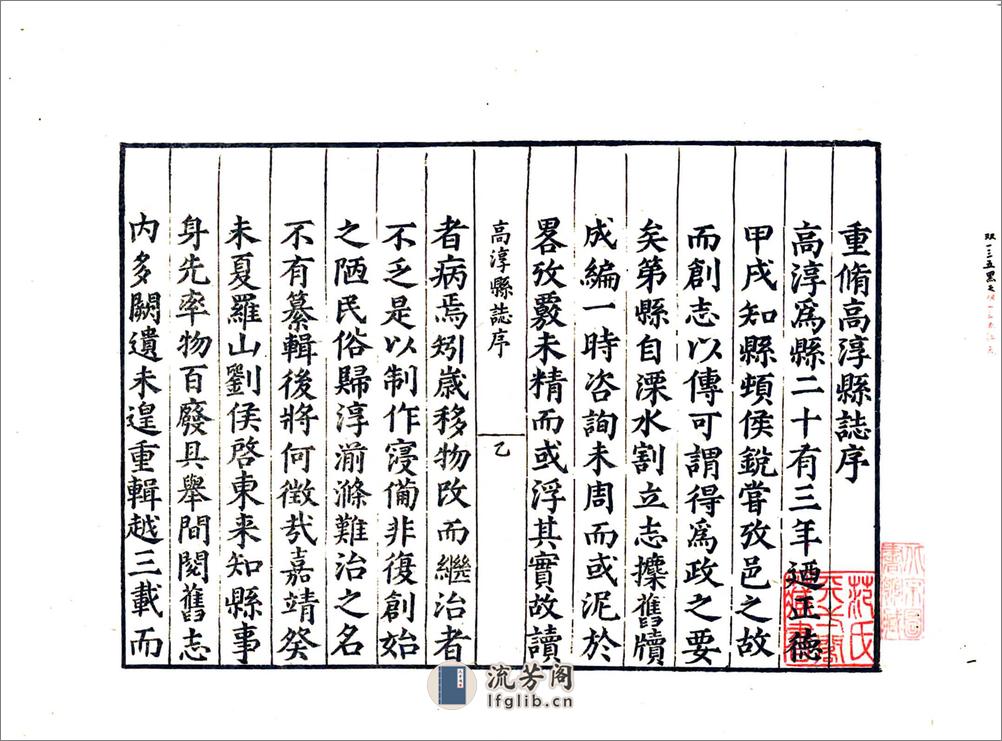 重脩高淳縣誌序
高淳爲縣二十有三年迺正德
甲戌知縣頓侯銳嘗攷邑之故
而創志以傳可謂得爲政之要
矣第縣自溧水割立志㩀舊牘
成編一時咨詢未周而或泥於
畧攷覈未精而或浮其實故讀
高淳縣誌序
乙
者病焉矧歲移物改而繼治者
不乏是以制作寖備非復創始
之陋民俗歸淳湔滌難治之名
不有纂輯後將何徵㢤嘉靖癸
未夏羅山劉侯啓東来知縣事
身先率物百廢具舉間閱舊志
内多闕遺未遑重輯越三載而
范氏
天一閣
藏書
流芳阁
lfglib.cn